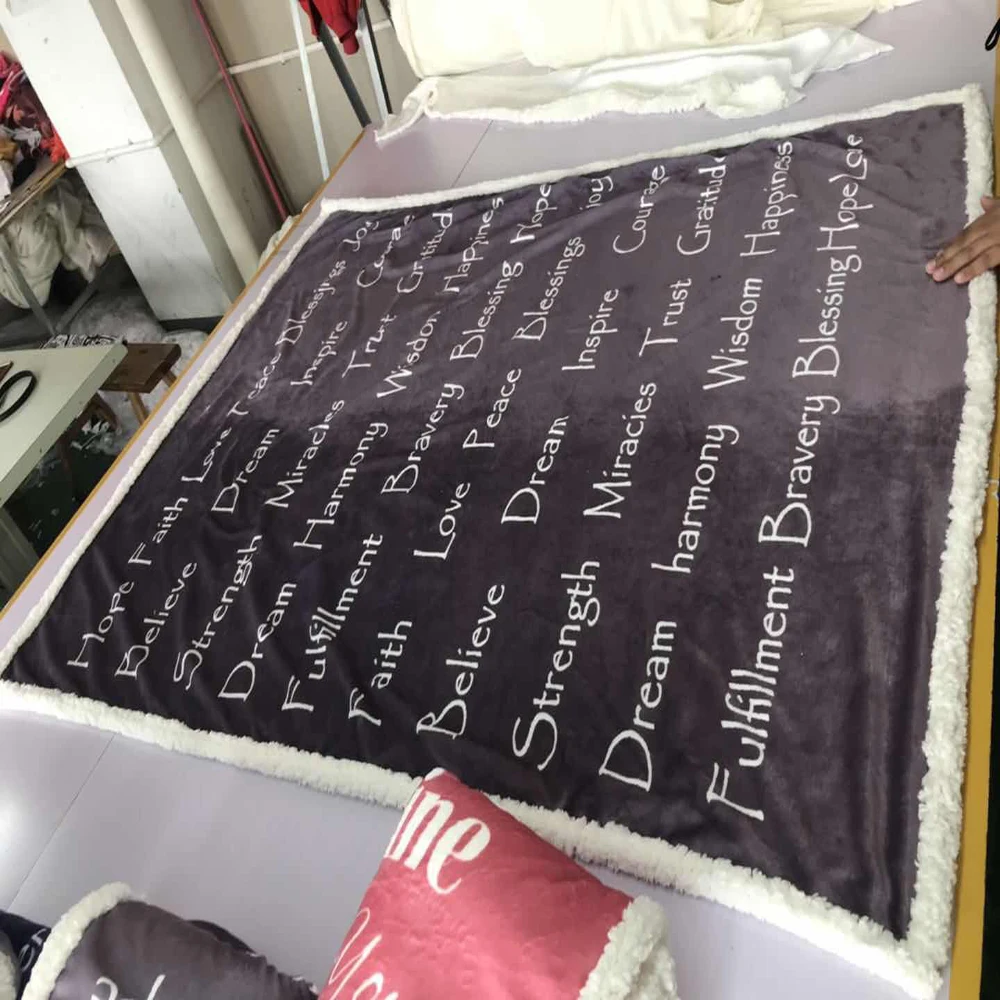 Hope Faith Love Peace Blessings Joy
Believe Dream Inspire
Strength Miracles Trust Grititud
Dream Harmony Wisdom Happines
Fulfillment Bravery Blessing Hope
Faith Love Peace Blessings joy
Believe Dream Inspire Courage
Strength Miracies Trust Gratitude
Dream harmony Wisdom Happiness
Fulfillment Bravery Blessing Hope
me